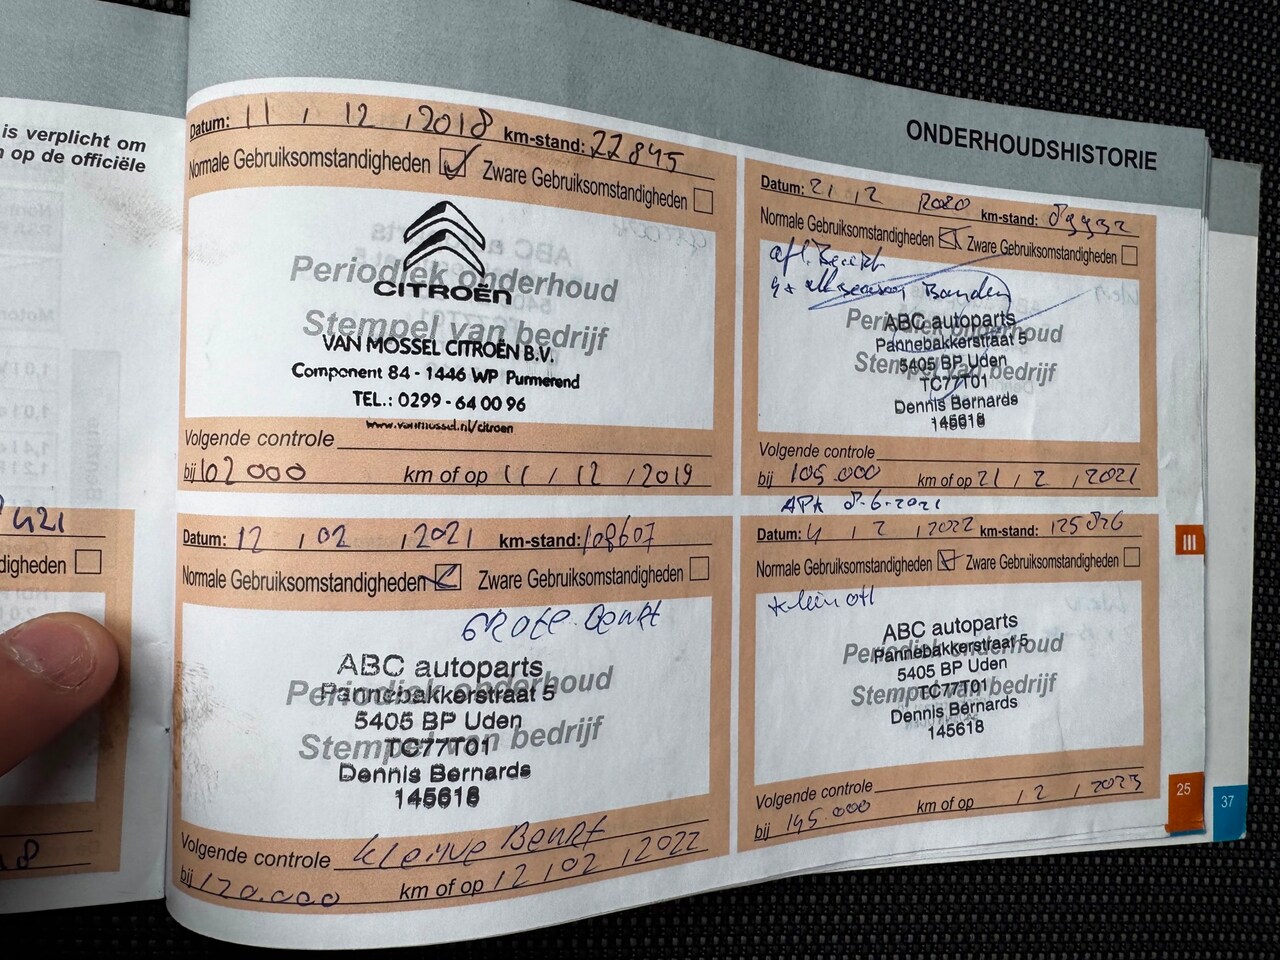 is verplicht om
op de officiële
421
digheden
ONDERHOUDSHISTORIE
Datum: 11 / 12 / 2018 km-stand: 22845
Normale Gebruiksomstandigheden Zware Gebruiksomstandigheden
Periodiek onderhoud
CITROËN
Stempel van bedrijf
VAN MOSSEL CITROËN B.V.
Component 84 - 1446 WP Purmerend
TEL.: 0299 - 64 00 96
www.vanmossel.nl/citroen
Volgende controle
bij 102000 km of op 11 / 12 / 2019
Datum: 21 / 2 2020 km-stand:
Normale Gebruiksomstandigheden Zware Gebruiksomstandigheden
Banden
ABC autoparts
Periodiek onderhoud
Pannebakkerstraat 5
5405 BP Uden
Stempel van bedrijf
TC77T01
Dennis Bernards
145618
Volgende controle
bij 105.000 km of op 21 / 2 / 2021
APK 8-6-2021
Datum: 12 / 02 / 2021 km-stand: 108607
Normale Gebruiksomstandigheden Zware Gebruiksomstandigheden
Grote Beurt
ABC autoparts
Periodiek onderhoud
Pannebakkerstraat 5
5405 BP Uden
Stempel van bedrijf
TC77T01
Dennis Bernards
145618
Volgende controle kleine Beurt
bij 120.000 km of op 12 / 02 / 2022
Datum: 4 / 2 / 2022 km-stand: 125826
Normale Gebruiksomstandigheden Zware Gebruiksomstandigheden
ABC autoparts
Periodiek onderhoud
Pannebakkerstraat 5
5405 BP Uden
Stempel van bedrijf
TC77T01
Dennis Bernards
145618
Volgende controle
bij 145.000 km of op / 2 / 2023
III
25
37